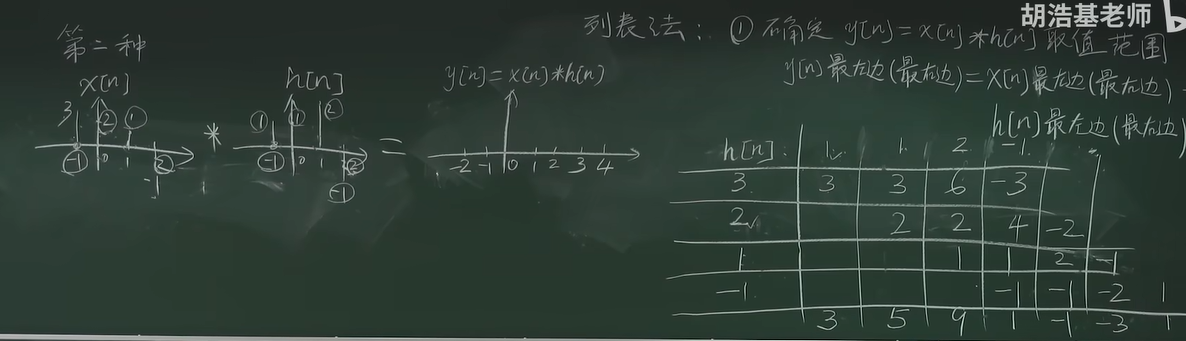 胡浩基老师
第二种
x[n]
3 ② ①
-1 0 1 ②
-1
*
h[n]
① ① ②
-1 0 1 ②
-1
=
y[n]=x[n]*h[n]
-2 -1 0 1 2 3 4
列表法: ① 确定 y[n]=x[n]*h[n]取值范围
y[n]最左边(最右边)=x[n]最左边(最右边)
h[n]最左边(最右边)
h[n]: 1 1 2 -1
3 3 3 6 -3
2 2 2 4 -2
1 1 1 2 -1
-1 -1 -1 -2 1
3 5 9 1 -1 -3 1